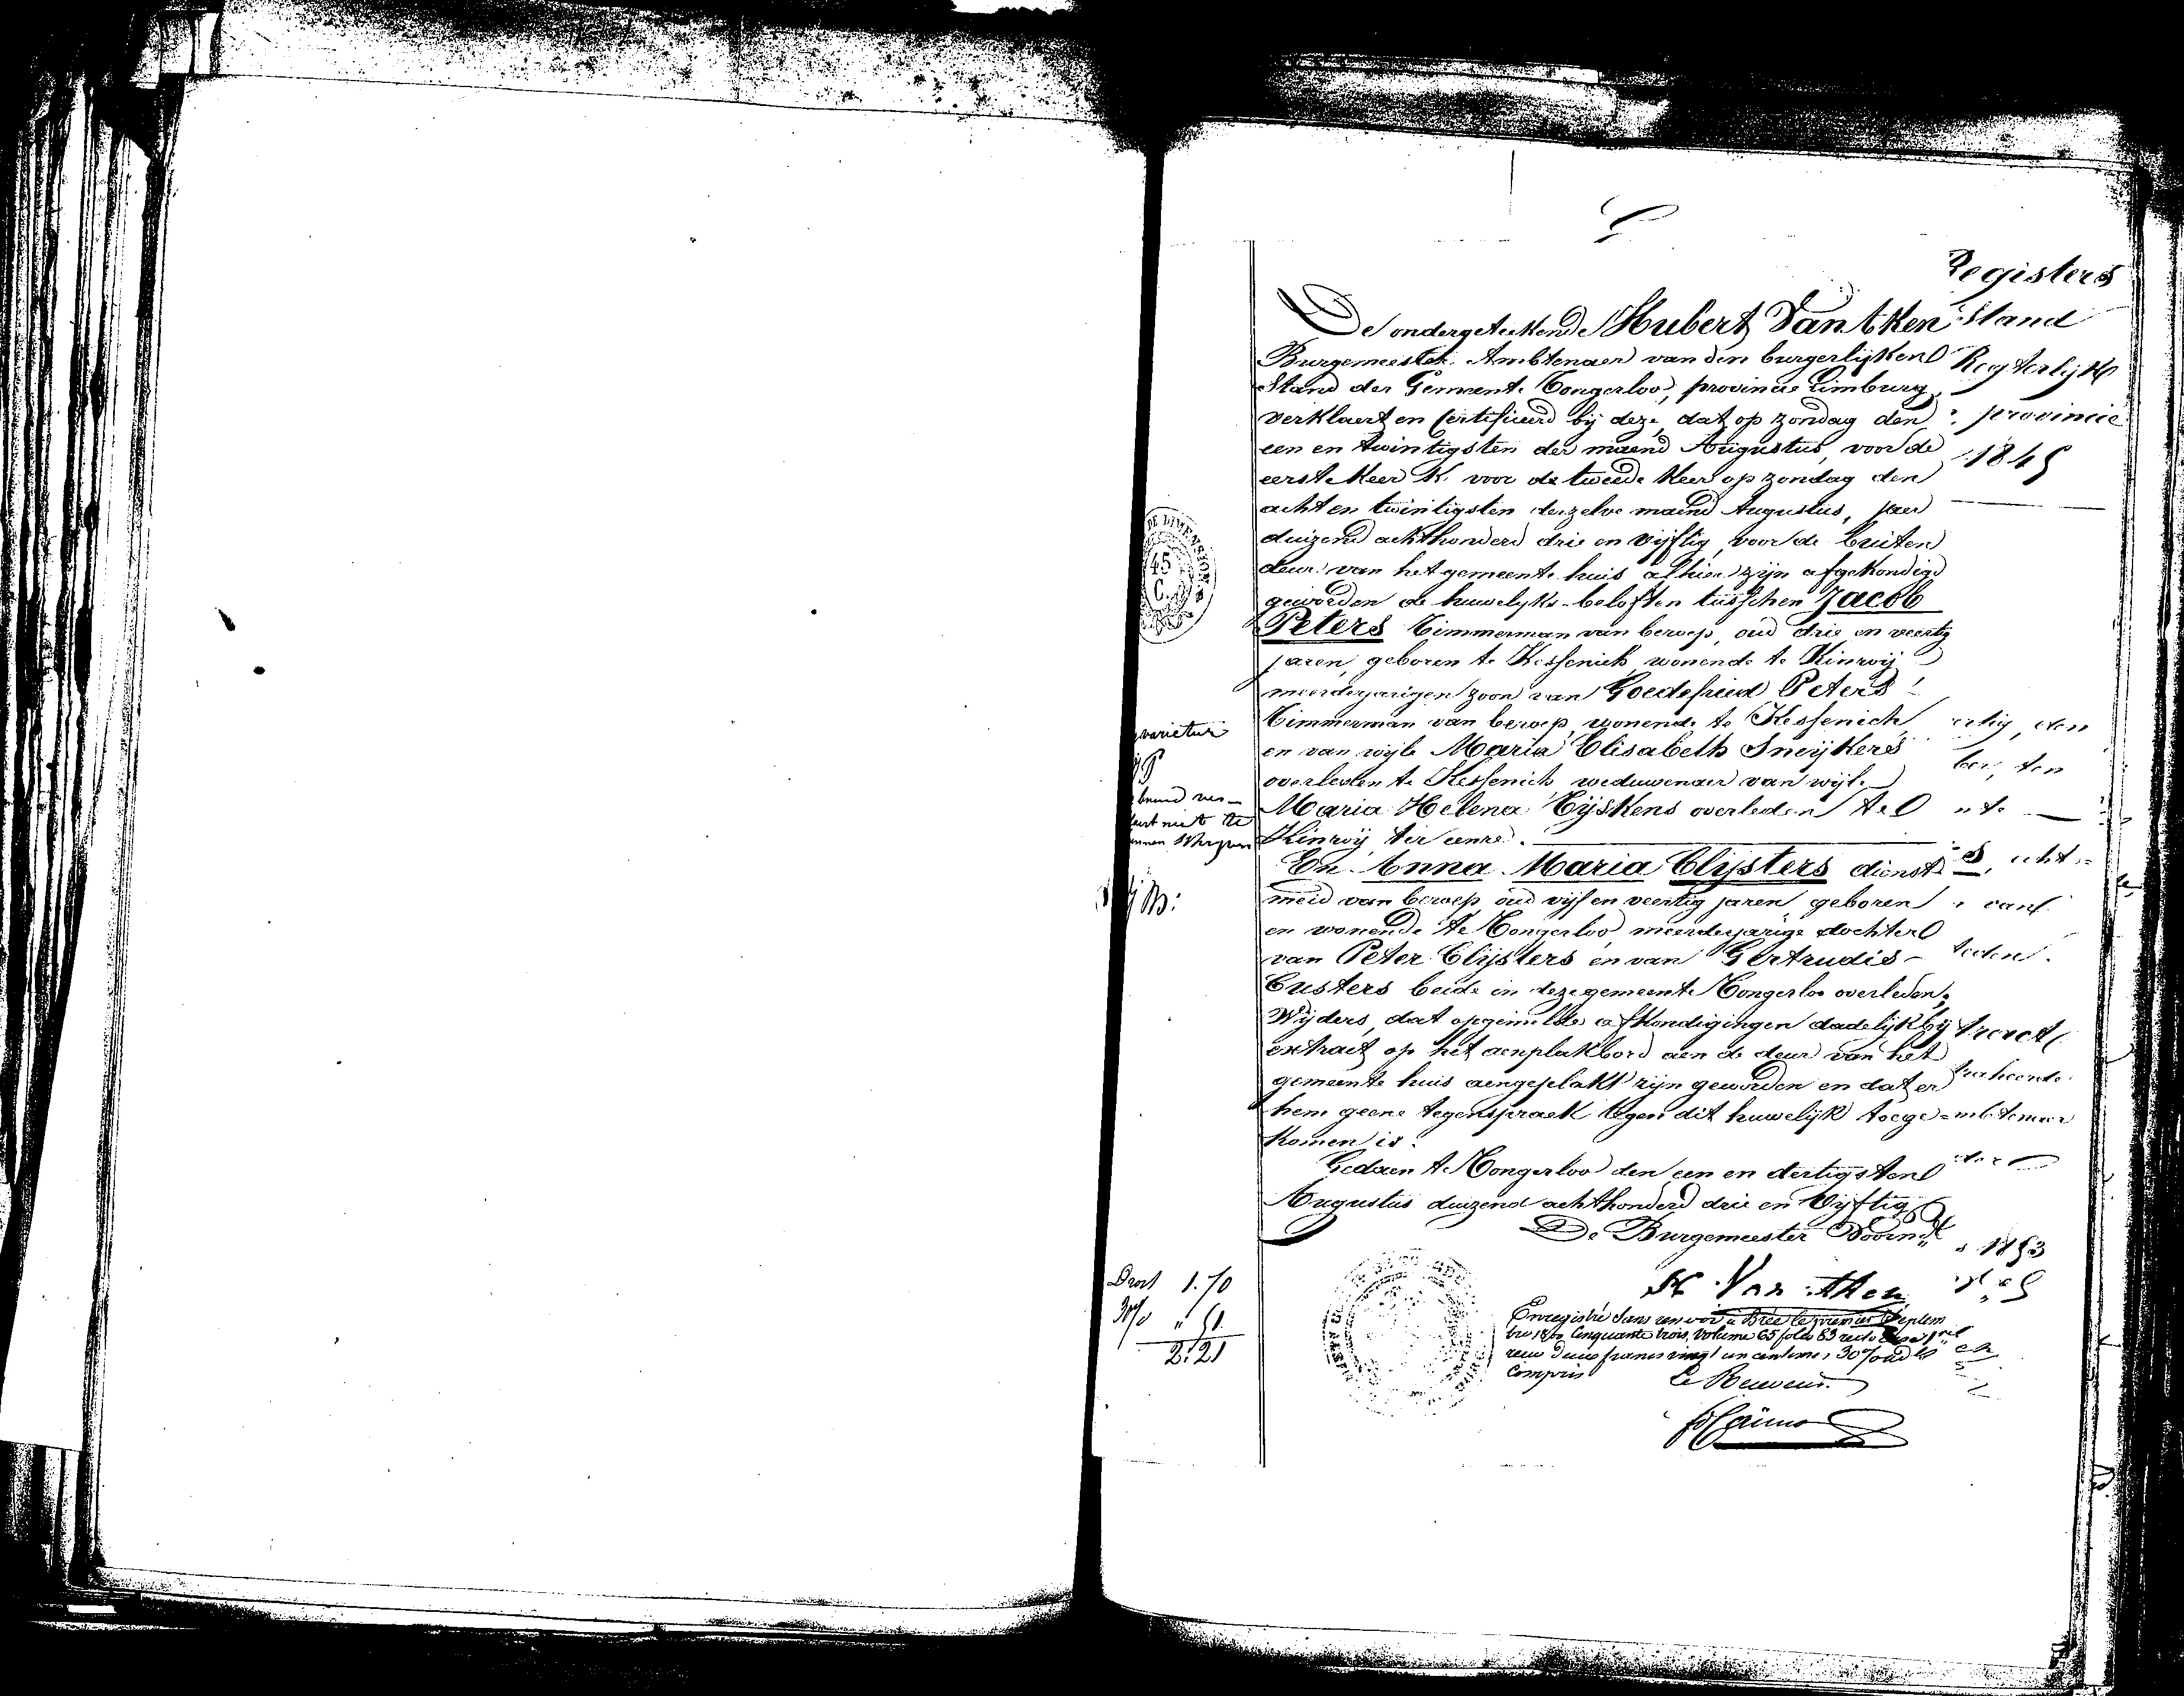 Registers
De ondergeteekende Hubert Van Aken
Stand
Burgemeester Ambtenaer van den burgerlijken
Regterlijk
Stand der Gemeente Tongerloo, provincie Limburg
verklaert en certifieerd bij deze, dat op zondag den
provincie
een en twintigsten der maend Augustus, voor de
1845
eerste keer &. voor de tweede keer op zondag den
acht en twintigsten derzelve maend Augustus, jaer
duizend achthonderd drie en vijftig, voor de buiten
deur van het gemeente huis alhier zijn afgekondigd
geworden de huwelyks-beloften tusschen Jacob
Peters Timmerman van beroep, oud drie en veertig
jaren, geboren te Kessenich wonende te Kinroij
meerderjarigen zoon van Goedefried Peters
Timmerman van beroep, wonende te Kessenich
en van wyle Maria Elisabeth Sneijkers
overleden te Kessenich weduwenaer van wijle
Maria Helena Tijskens overleden te
Kinroij ter eenre.
En Anna Maria Clijsters dienst
meid van beroep oud vijf en veertig jaren geboren
en wonende te Tongerloo meerderjarige dochter
van Peter Clijsters en van Gertrudis
Custers beide in deze gemeente Tongerloo overleden.
Wijders, dat opgemelde afkondigingen dadelijk bij
extract op het aenplakbord aen de deur van het
gemeente huis aengeplakt zijn geworden en dat er
hem geene tegenspraek tegen dit huwelijk toege=
komen is.
Gedaen te Tongerloo den een en dertigsten
Augustus duizend achthonderd drie en vijftig
De Burgemeester Voornd
1853
H Van Aken
Enregistré sans renvoi à Brée le premier Septem
bre 18% Cinquante trois, volume 65 folio 83 recto
reçu deux francs vingt un centimes, 30% add
Compris
Le Receveur
Droit 1.70
30% " 51.
2.21
DE DIMENSION
45
C.